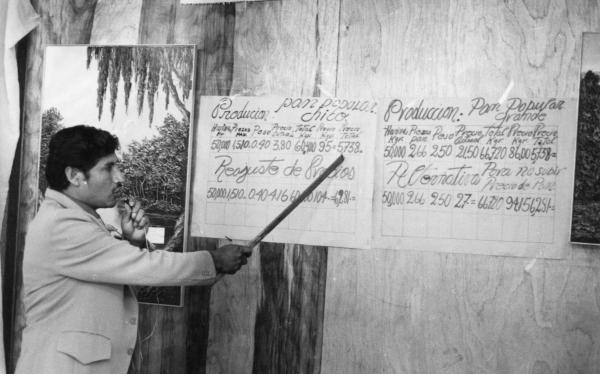 Producion: pan popular
chico
Harina Piezas Peso Precio Total Precio Precio
pan Kgr. Total
50,000 1,510. 0.40 3.80 60,400 95= 5738.=
Reajuste de Precios
50,000 1,510.. 0.40 4.16 60,400 104= 6,281.=
Producion: Pan Popular
Grande
Harina Piezas Peso Precio Total Precio Precio
Kgr. pan Kgr. Total
50,000 266 250 21.50 66,720 86,00 5,738=
Alternativa Para no subir
Precio de Pan
50,000 266 250 27= 66,720 94.15 6,281.=